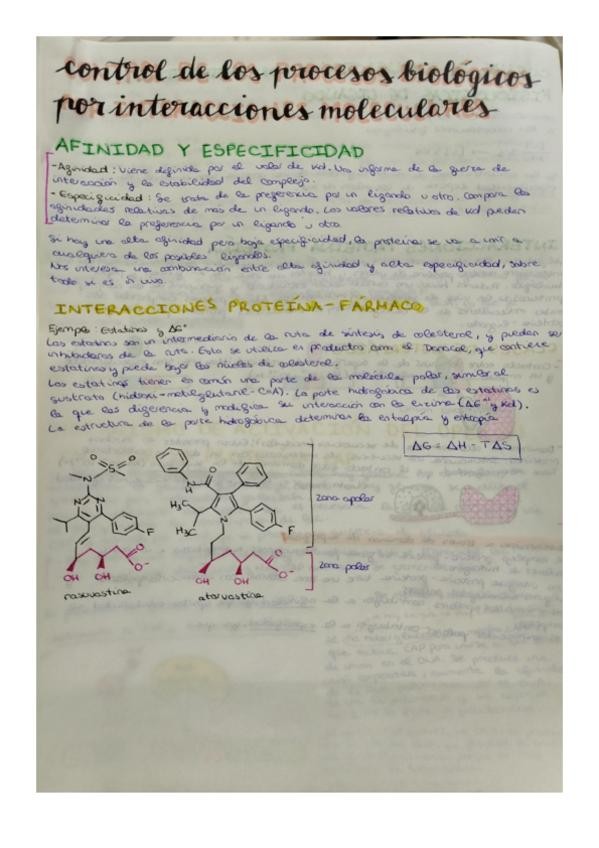 control de los procesos biológicos
por interacciones moleculares
AFINIDAD Y ESPECIFICIDAD
- Afinidad: Viene definida por el valor de Kd. Nos informa de la fuerza de
interacción y la estabilidad del complejo.
- Especificidad: Se trata de la preferencia por un ligando u otro. Compara las
afinidades relativas de más de un ligando. Los valores relativos de Kd pueden
determinar la preferencia por un ligando u otro.
Si hay una alta afinidad pero baja especificidad, la proteína se va a unir a
cualquiera de los posibles ligandos.
Nos interesa una combinación entre alta afinidad y alta especificidad, sobre
todo si es in vivo.
INTERACCIONES PROTEÍNA-FÁRMACO
Ejemplo: Estatinas y ΔG°
Las estatinas son un intermediario de la ruta de síntesis de colesterol, y pueden ser
inhibidores de la ruta. Esto se utiliza en productos como el Danacol, que contiene
estatinas y puede bajar los niveles de colesterol.
Las estatinas tienen en común una parte de la molécula polar, similar al
sustrato (hidroxi-metilglutaril-CoA). La parte hidrofóbica de las estatinas es
la que las diferencia y modifica su interacción con la enzima (ΔG y Kd).
La estructura de la parte hidrofóbica determina la entalpía y entropía
ΔG = ΔH - TΔS
O S O
N
N N
F
O
O⁻
OH OH
rosuvastina
N
H
O
H₃C
H₃C
N
F
O
O⁻
OH OH
atorvastina
zona apolar
zona polar